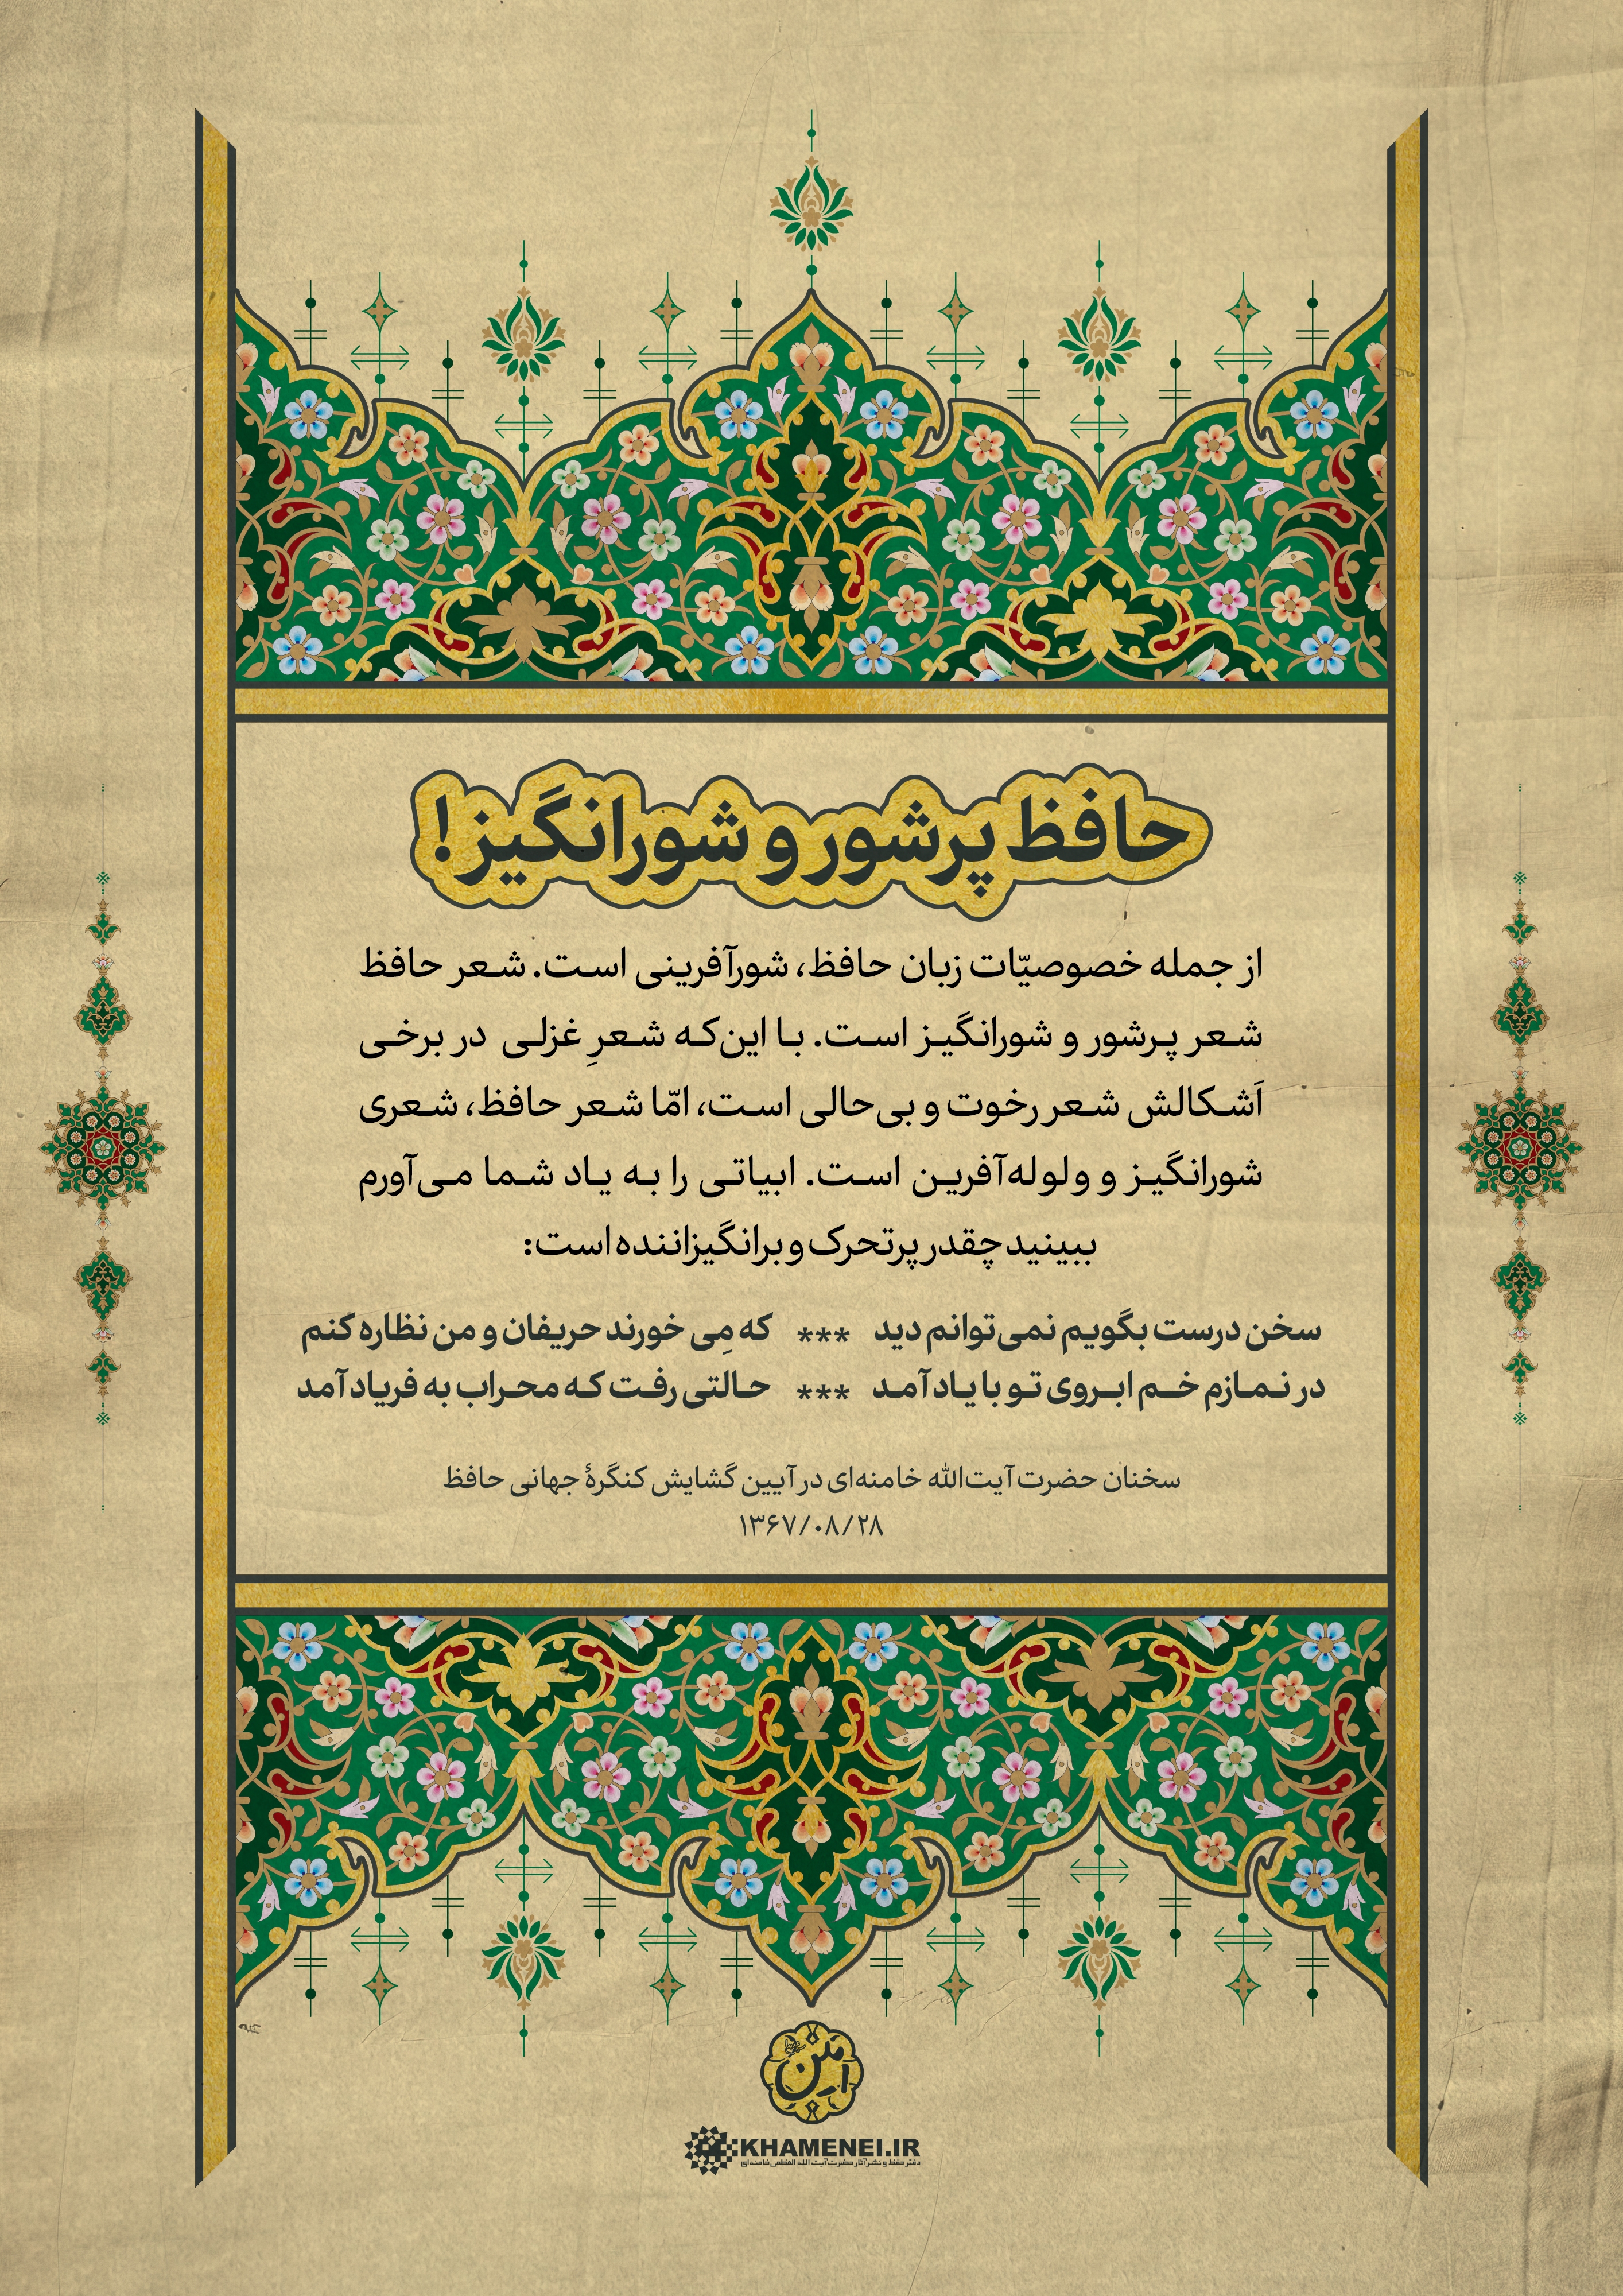 حافظ پرشور و شورانگیز!
از جمله خصوصیّات زبان حافظ، شورآفرینی است. شعر حافظ
شعر پرشور و شورانگیز است. با این‌که شعرِ غزلی در برخی
اَشکالش شعر رخوت و بی‌حالی است، امّا شعر حافظ، شعری
شورانگیز و ولوله‌آفرین است. ابیاتی را به یاد شما می‌آورم
ببینید چقدر پرتحرک و برانگیزاننده است:
سخن درست بگویم نمی‌توانم دید *** که مِی خورند حریفان و من نظاره کنم
در نمازم خم ابروی تو با یاد آمد *** حالتی رفت که محراب به فریاد آمد
سخنان حضرت آیت‌الله خامنه‌ای در آیین گشایش کنگرهٔ جهانی حافظ
۱۳۶۷/۰۸/۲۸
KHAMENEI.IR
دفتر حفظ و نشر آثار حضرت آیت الله العظمی خامنه‌ای